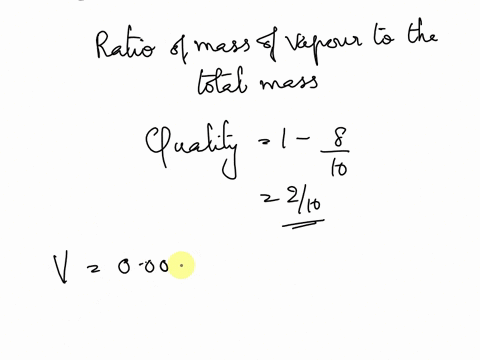 Ratio of mass of vapour to the
total mass
Quality = 1 - 8/10
= 2/10
V = 0.00